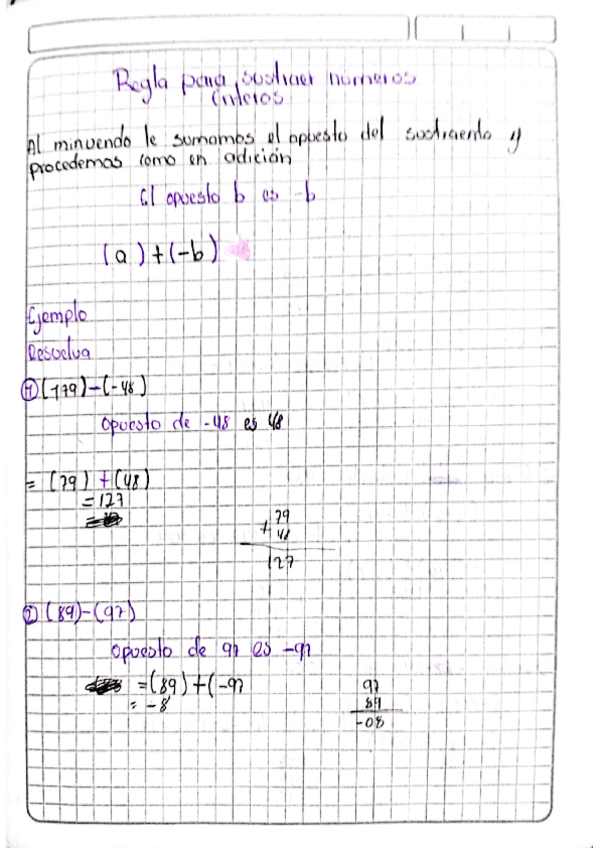 Regla para sustraer números
enteros
Al minuendo le sumamos el opuesto del sustraendo y
procedemos como en adición
El opuesto b es -b
(a)+(-b)
Ejemplo
Resuelva
① (+79)-(-48)
Opuesto de -48 es 48
= (79) + (48)
= 127
79
+ 48
127
② (89)-(97)
Opuesto de 97 es -97
=(89)+(-97
= -8
97
89
-08